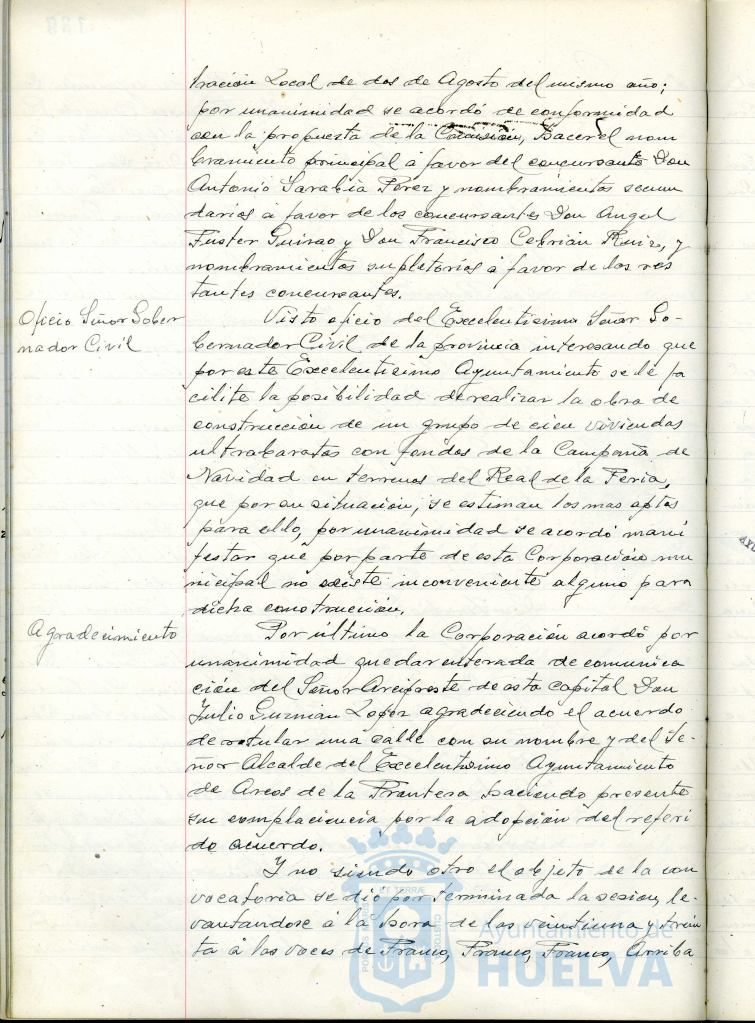 tración Local de dos de Agosto del mismo año;
por unanimidad se acordó de conformidad
con la propuesta de la Comisión, hacer el nom
bramiento principal á favor del concursante Don
Antonio Sarabia Pérez y nombramientos secun
darios á favor de los concursantes Don Angel
Fuster Guirao y Don Francisco Cebrián Ruiz, y
nombramientos supletorios á favor de los res
tantes concursantes.
Oficio Señor Gober
nador Civil
Visto oficio del Excelentisimo Señor Go-
bernador Civil de la provincia interesando que
por este Excelentisimo Ayuntamiento se le fa
cilite la posibilidad de realizar la obra de
construcción de un grupo de cien viviendas
ultrabaratas con fondos de la Campaña de
Navidad en terrenos del Real de la Feria,
que por su situación, se estiman los mas aptos
para ello, por unanimidad se acordó mani
festar que por parte de esta Corporación mu
nicipal no existe inconveniente alguno para
dicha construcción.
Agradecimiento
Por último la Corporación acordó por
unanimidad quedar enterada de comunica
ción del Señor Arcipreste de esta capital Don
Julio Guzman Lopez agradeciendo el acuerdo
de rotular una calle con su nombre y del Se-
ñor Alcalde del Excelentisimo Ayuntamiento
de Arcos de la Frontera haciendo presente
su complacencia por la adopción del referi
do acuerdo.
Y no siendo otro el objeto de la con
vocatoria se dió por terminada la sesion, le-
vantandose á la hora de las veintiuna y trein
ta á las voces de Franco, Franco, Franco, Arriba
Ayuntamiento de
HUELVA